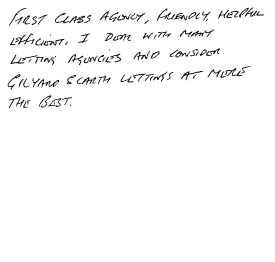 First Class Agency, Friendly, Helpful
efficient. I deal with many
letting agencies and consider
Gilyard Scarth lettings at more
the Best.